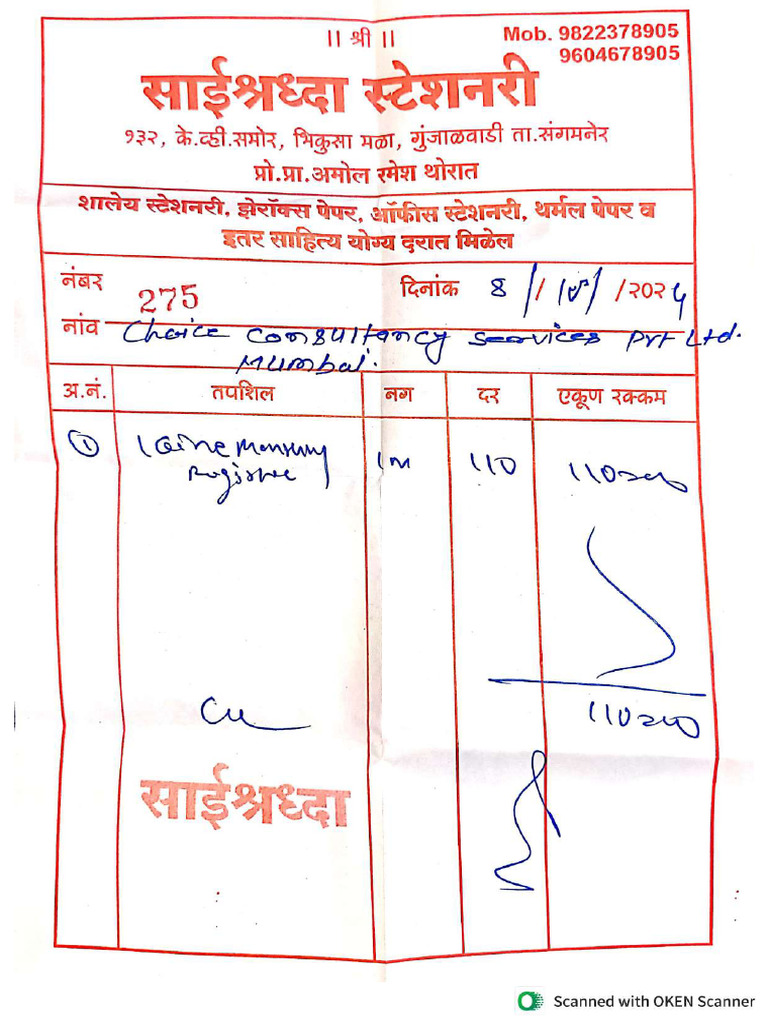 ॥ श्री ॥
Mob. 9822378905
9604678905
साईश्रध्दा स्टेशनरी
१३२, के.व्ही.समोर, भिकुसा मळा, गुंजाळवाडी ता.संगमनेर
प्रो.प्रा.अमोल रमेश थोरात
शालेय स्टेशनरी, झेरॉक्स पेपर, ऑफीस स्टेशनरी, थर्मल पेपर व
इतर साहित्य योग्य दरात मिळेल
नंबर 275 दिनांक 8 / /२०२
नांव Choice Consultancy Services Pvt Ltd.
Mumbai.
अ.नं. तपशिल नग दर एकूण रक्कम
① 110
साईश्रध्दा
Scanned with OKEN Scanner